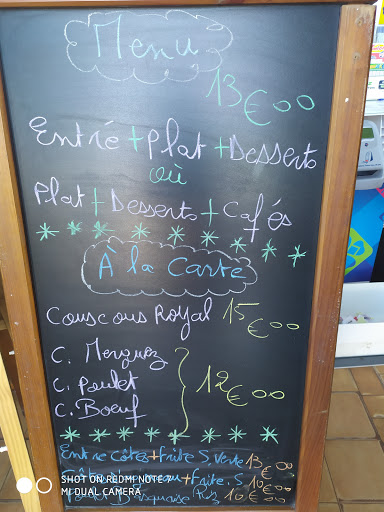 Menu
13€00
Entré + Plat + Desserts
où
Plat + Desserts + Cafés
À la Carte
Couscous Royal 15€00
C. Merguez
C. Poulet 12€00
C. Boeuf
Entre Côte + frite S. Verte 13€00
+ frite. S 10€00
Poulet Basquaise Riz 10€00
SHOT ON REDMI NOTE
MI DUAL CAMERA